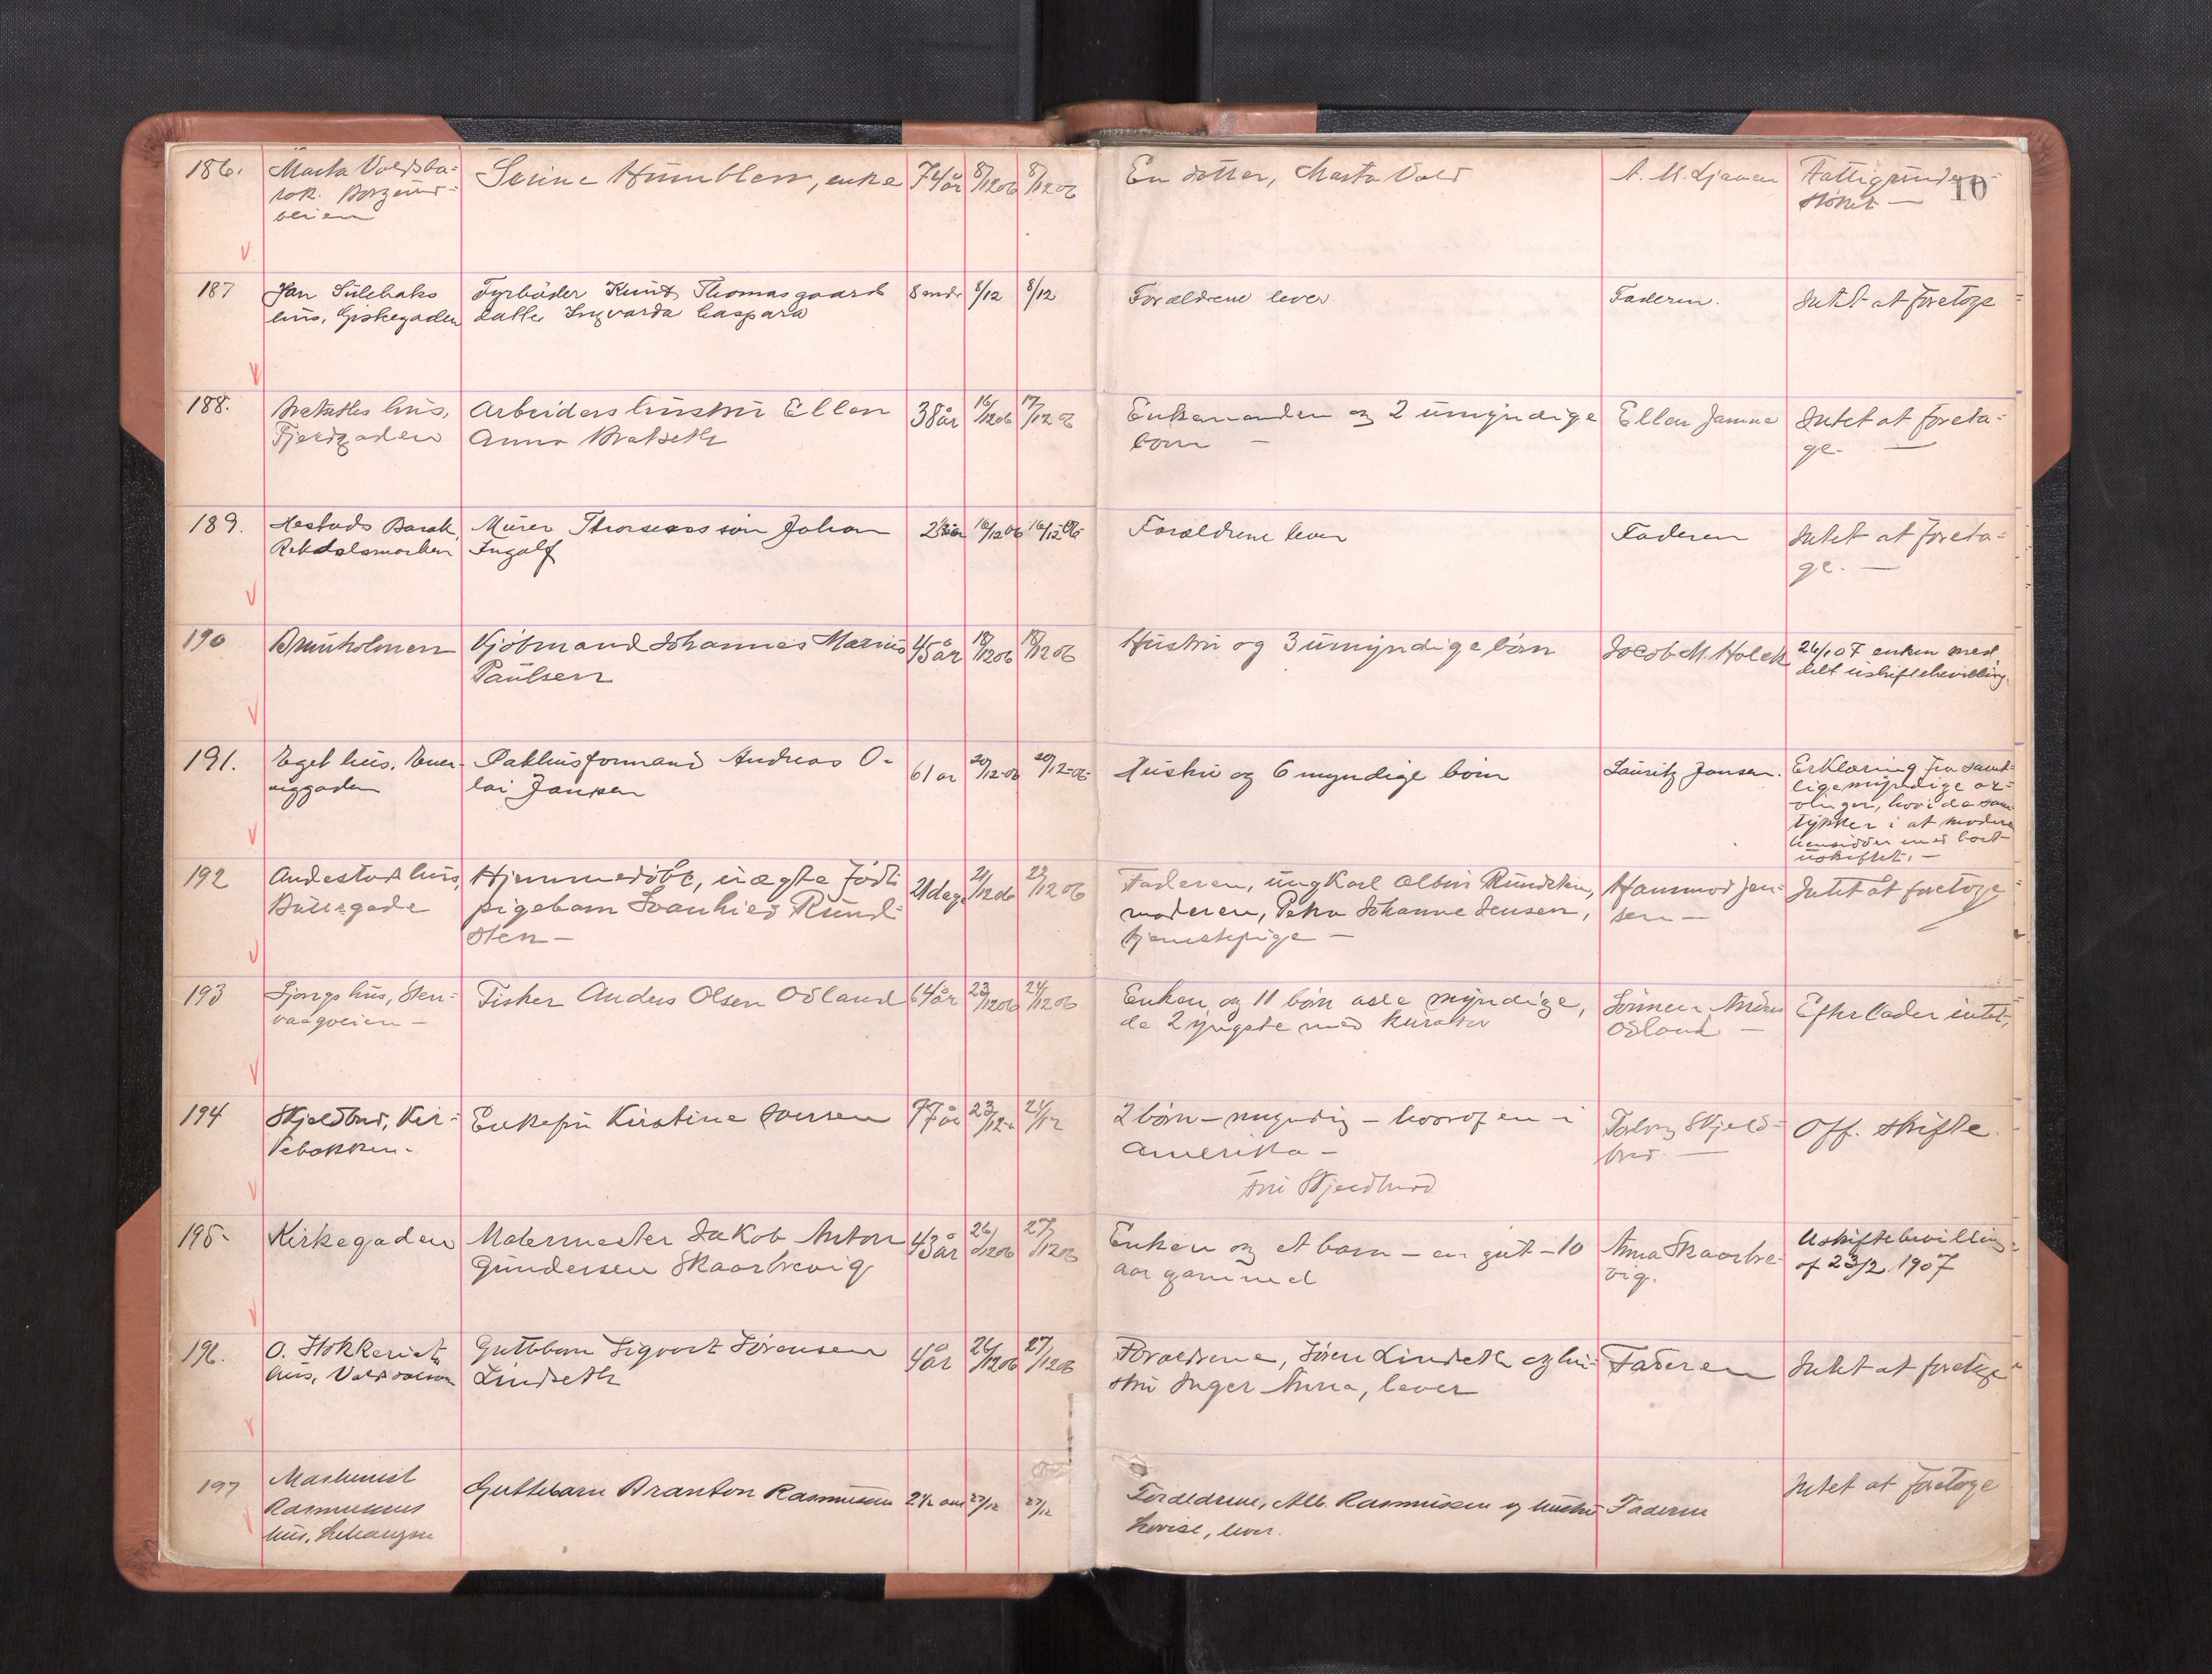 10
186. Marta Voldsba-
rak. Borgund-
veien
Serine Humblen, enke
74 år 8/12 06 8/12 06
En datter, Marta Vold
Fattigunder-
støttet —
187
Jan Sulebaks
hus, Giskegaden
Fyrbøder Knut Thomasgaard
datter Ingvarda Caspara
8 mdr 8/12 8/12
Forældrene lever
Faderen.
Intet at foretage
188.
Bratseths hus,
Fjeldgaden
Arbeiders hustru Ellen
Anna Bratseth
38 år 16/12 06 17/12 06
Enkemanden og 2 umyndige
børn —
Ellen Janna
Intet at foreta-
ge. —
189.
Hestads Barak,
Rekdalsmarken
Murer Thorsens søn Johan
Ingolf
16/12 06 16/12 06
Forældrene lever
Faderen
Intet at foreta-
ge. —
190
Brunholmen
Kjøbmand Johannes Marius
Paulsen
45 år 18/12 06 18/12 06
Hustru og 3 umyndige børn
Jacob M. Holck
26/1 07 enken med
delt uskiftebevilling.
191.
Eget hus,
Pakhusformand Andreas O-
lai Jansen
61 år 20/12-06 20/12-06
Hustru og 6 myndige børn
Lauritz Jansen.
Erklæring fra samt-
lige myndige ar-
vinger, hvori de sam-
tykker i at moderen
hensidder med boet
uskiftet. —
192
Andestads hus,
Buesgade
Hjemmedøbt, uægte født
pigebarn Svanhild Rund-
sten —
21 dage 21/12 06 22/12 06
Faderen, ungkarl Albin Rundsten,
moderen, Petra Johanne Jensen,
tjenestepige —
Hammod Jen-
sen —
Intet at foretage
193
Ljongs hus, Sten-
vaagveien —
Fisker Anders Olsen Ødland
64 år 23/12 06 24/12 06
Enken og 11 børn alle myndige,
de 2 yngste med kurator
Sønnen
Ødland —
Efterlader intet,
194
Skjeldbred, Kir-
kebakken.
Enkefru Kirstine Iversen
77 år 23/12 24/12
2 børn – myndig – hvoraf en i
Amerika –
Fru Skjelbred
Skjeld-
bred. —
Off. skifte.
195
Kirkegaden
Malermester Jakob Anton
Gundersen Skaarbrevig
43 år 26/12 06 27/12 06
Enken og et barn – en gut – 10
aar gammel
Anna Skaarbre-
vig.
Uskiftebevilling
af 23/2 1907
196.
O. Stokkeriets
hus,
Guttebarn Sigvart Sørensen
Lindseth
4 år 26/12 06 27/12 06
Forældrene, Søren Lindseth og hu-
stru Inger Anna, lever
Faderen
Intet at foretage
197
Maskinist
Rasmussens
hus,
Guttebarn Branton Rasmussen
2½ 27/12 27/12
Forældrene, Alb. Rasmussen og hustru
Lovise, lever.
Faderen
Intet at foretage